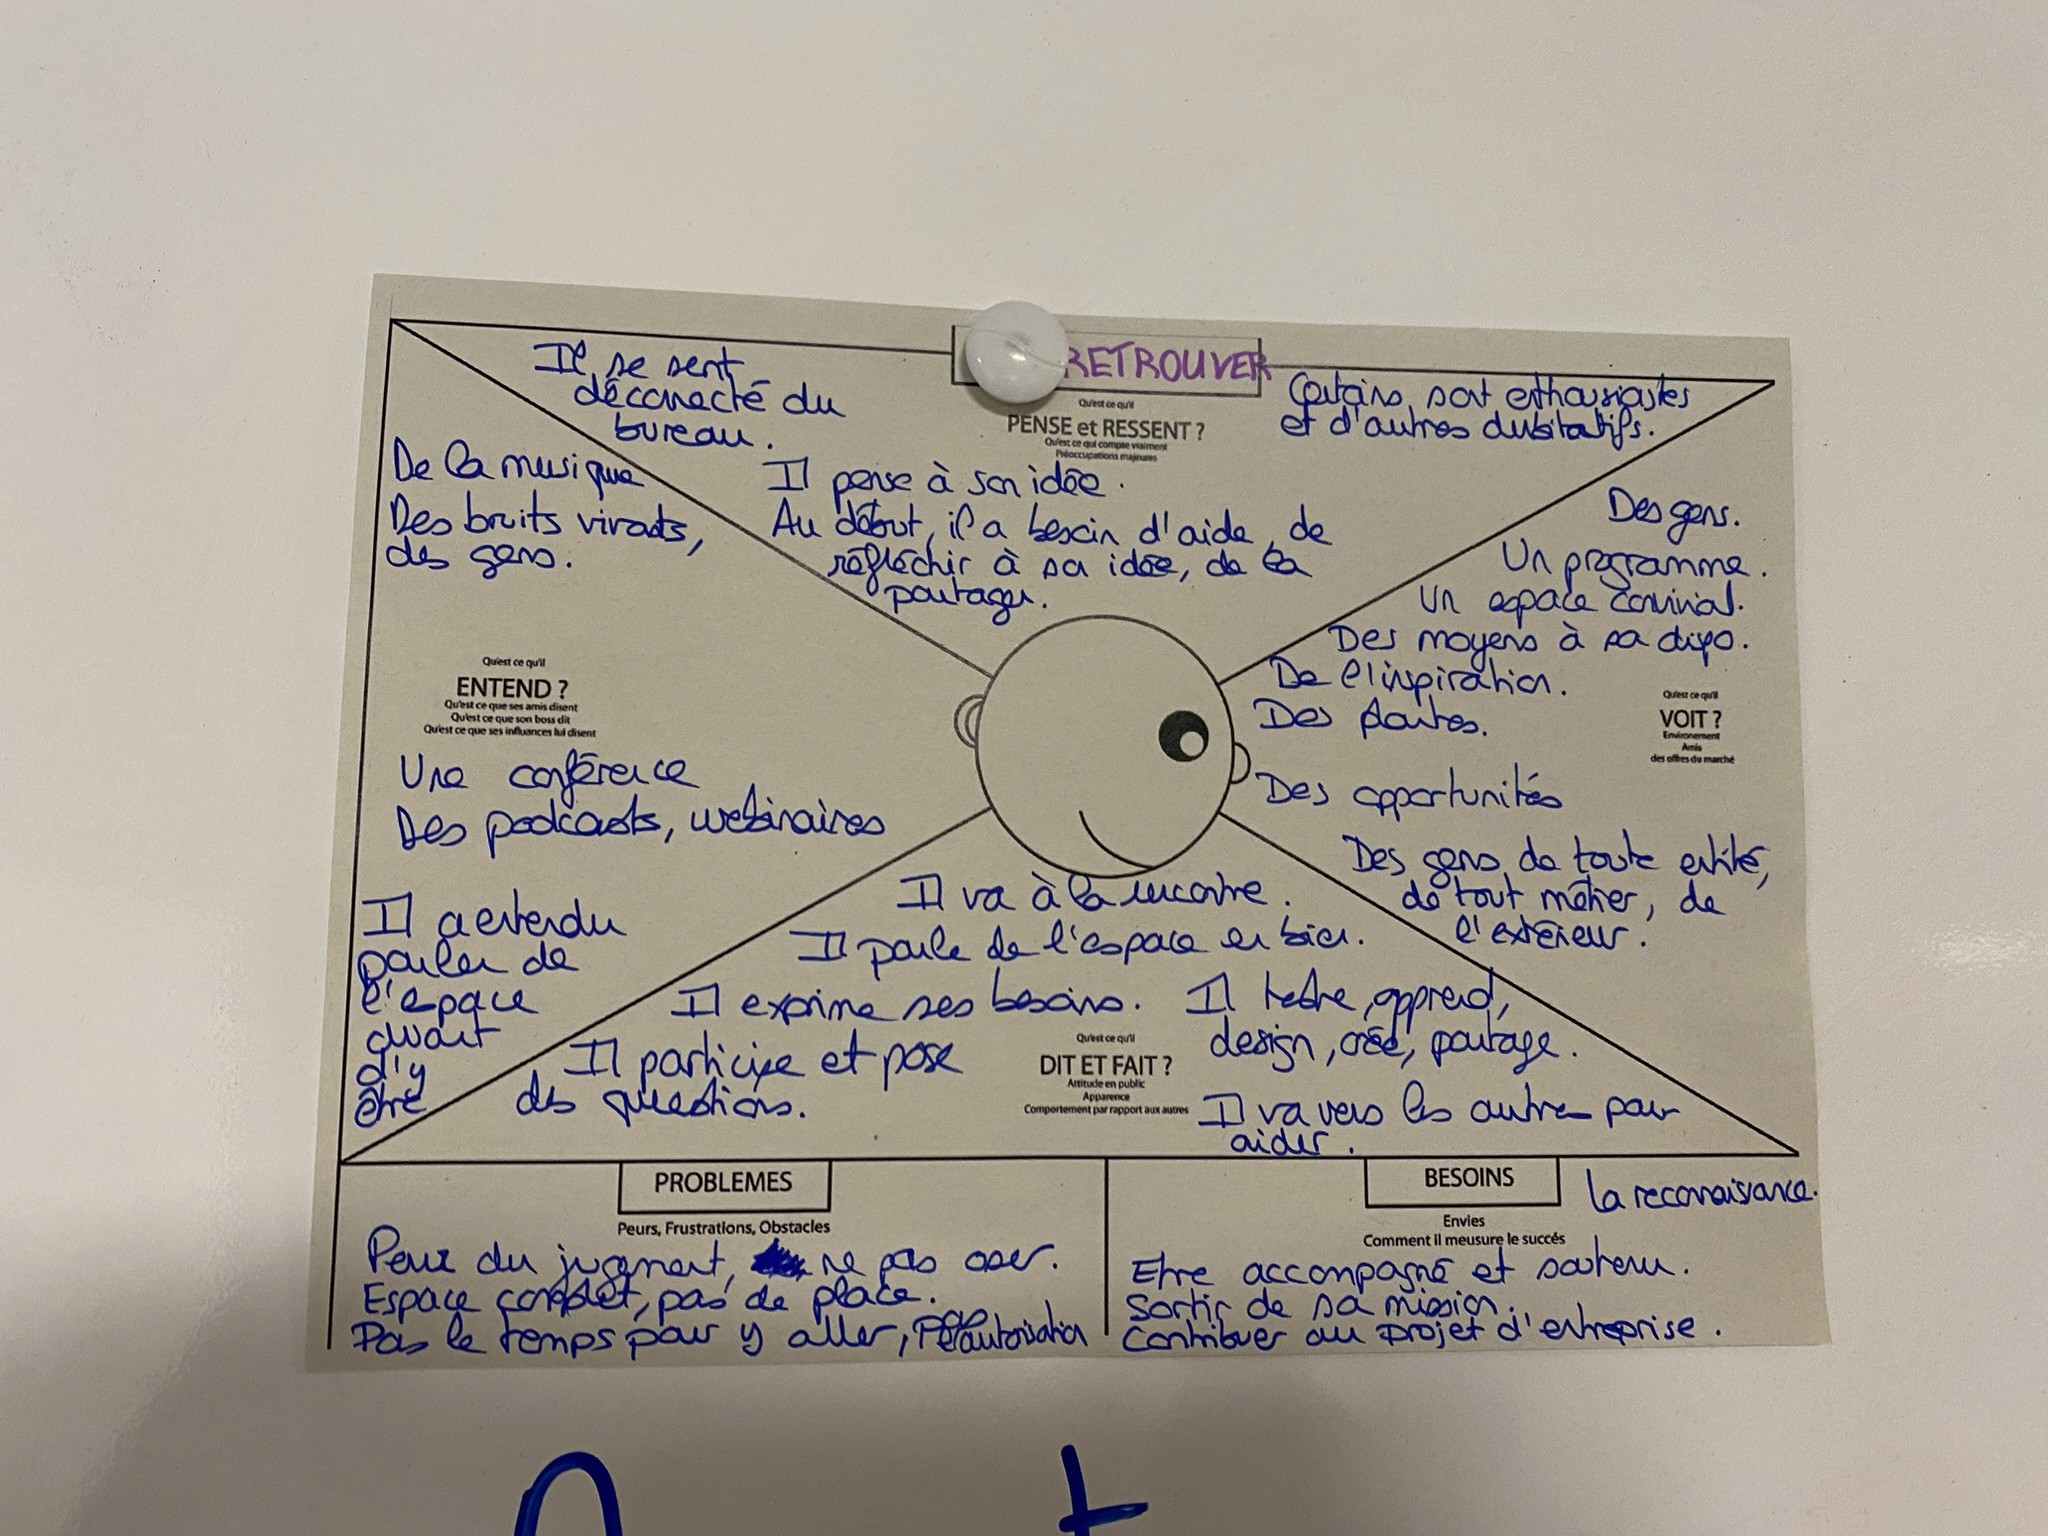 RETROUVER
Qu'est ce qu'il
PENSE et RESSENT ?
Qu'est ce qui compte vraiment
Préoccupations majeures
Il se sent
déconnecté du
bureau.
Certains sont enthousiastes
et d'autres dubitatifs.
Il pense à son idée.
Au début, il a besoin d'aide, de
réfléchir à sa idée, de la
partager.
De la musique
Des bruits vivants,
des gens.
Qu'est ce qu'il
ENTEND ?
Qu'est ce que ses amis disent
Qu'est ce que son boss dit
Qu'est ce que ses influences lui disent
Une conférence
Des podcasts, webinaires
Il a entendu
parler de
l'espace
avant
d'y
être
Des gens.
Un programme.
Un espace convivial.
Des moyens à sa dispo.
De l'inspiration.
Des plantes.
Qu'est ce qu'il
VOIT ?
Environement
Amis
des offres du marché
Des opportunités
Des gens de toute entité,
de tout métier, de
l'extérieur.
Il va à la rencontre.
Il parle de l'espace en bien.
Il exprime ses besoins.
Il participe et pose
des questions.
Qu'est ce qu'il
DIT ET FAIT ?
Attitude en public
Apparence
Comportement par rapport aux autres
Il teste, apprend,
design, crée, partage.
Il va vers les autres pour
aider.
PROBLEMES
Peurs, Frustrations, Obstacles
Peur du jugment, ne pas oser.
Espace complet, pas de place.
Pas le temps pour y aller, pas autorisation
BESOINS
Envies
Comment il meusure le succés
la reconnaissance.
Etre accompagné et soutenu.
Sortir de sa mission.
Contribuer au projet d'entreprise.